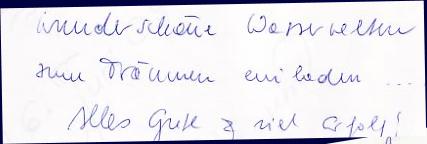 wunderschöne Wasserwelten
zum Träumen einladen ...
Alles Gute & viel Erfolg!